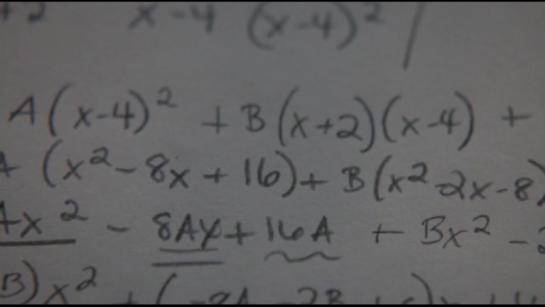 +2 x-4 (x-4)²
A(x-4)² + B(x+2)(x-4) +
A (x²-8x+16)+ B(x²-2x-8)
Ax² - 8Ax+16A + Bx² - 2
B)x² + (-8A - 2B +